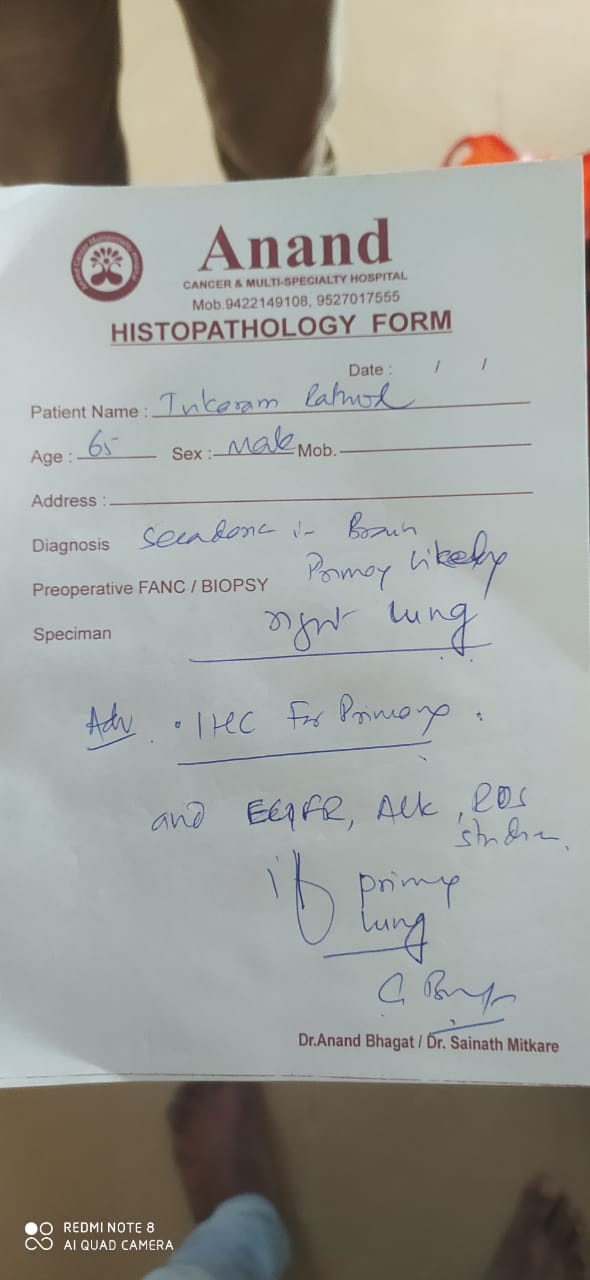 Anand
CANCER & MULTI-SPECIALTY HOSPITAL
Mob.9422149108, 9527017555
HISTOPATHOLOGY FORM
Date : / /
Patient Name : Tukaram
Age : 65 Sex : Male Mob.
Address :
Diagnosis in Brain
Preoperative FANC / BIOPSY Primary likely
Speciman right lung
Adv . IHC For Primary .
and EGFR, ALK, ROS
studies.
if primary
lung
Dr.Anand Bhagat / Dr. Sainath Mitkare
REDMI NOTE 8
AI QUAD CAMERA